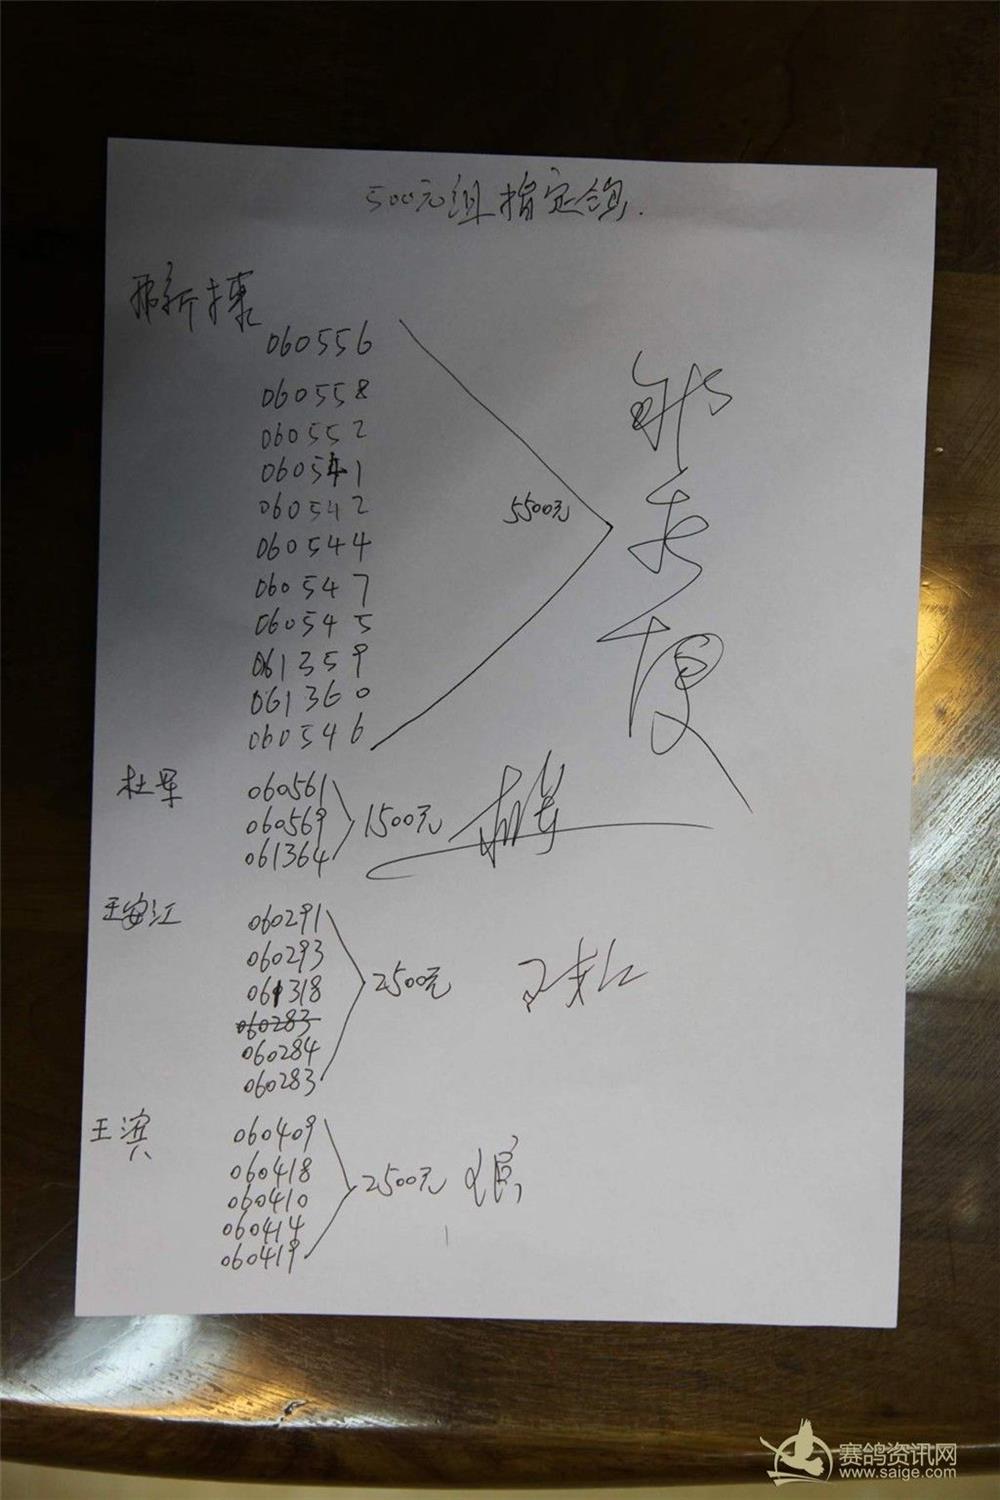 500元组指定鸽.
新
060556
060558
060552
060541
060542
060544
060547
060545
061359
061360
060546
5500元
杜军
060561
060569
061364
1500元
王安江
060291
060293
061318
060283
060284
060283
2500元
王滨
060409
060418
060410
060414
060419
2500元
赛鸽资讯网
www.saige.com